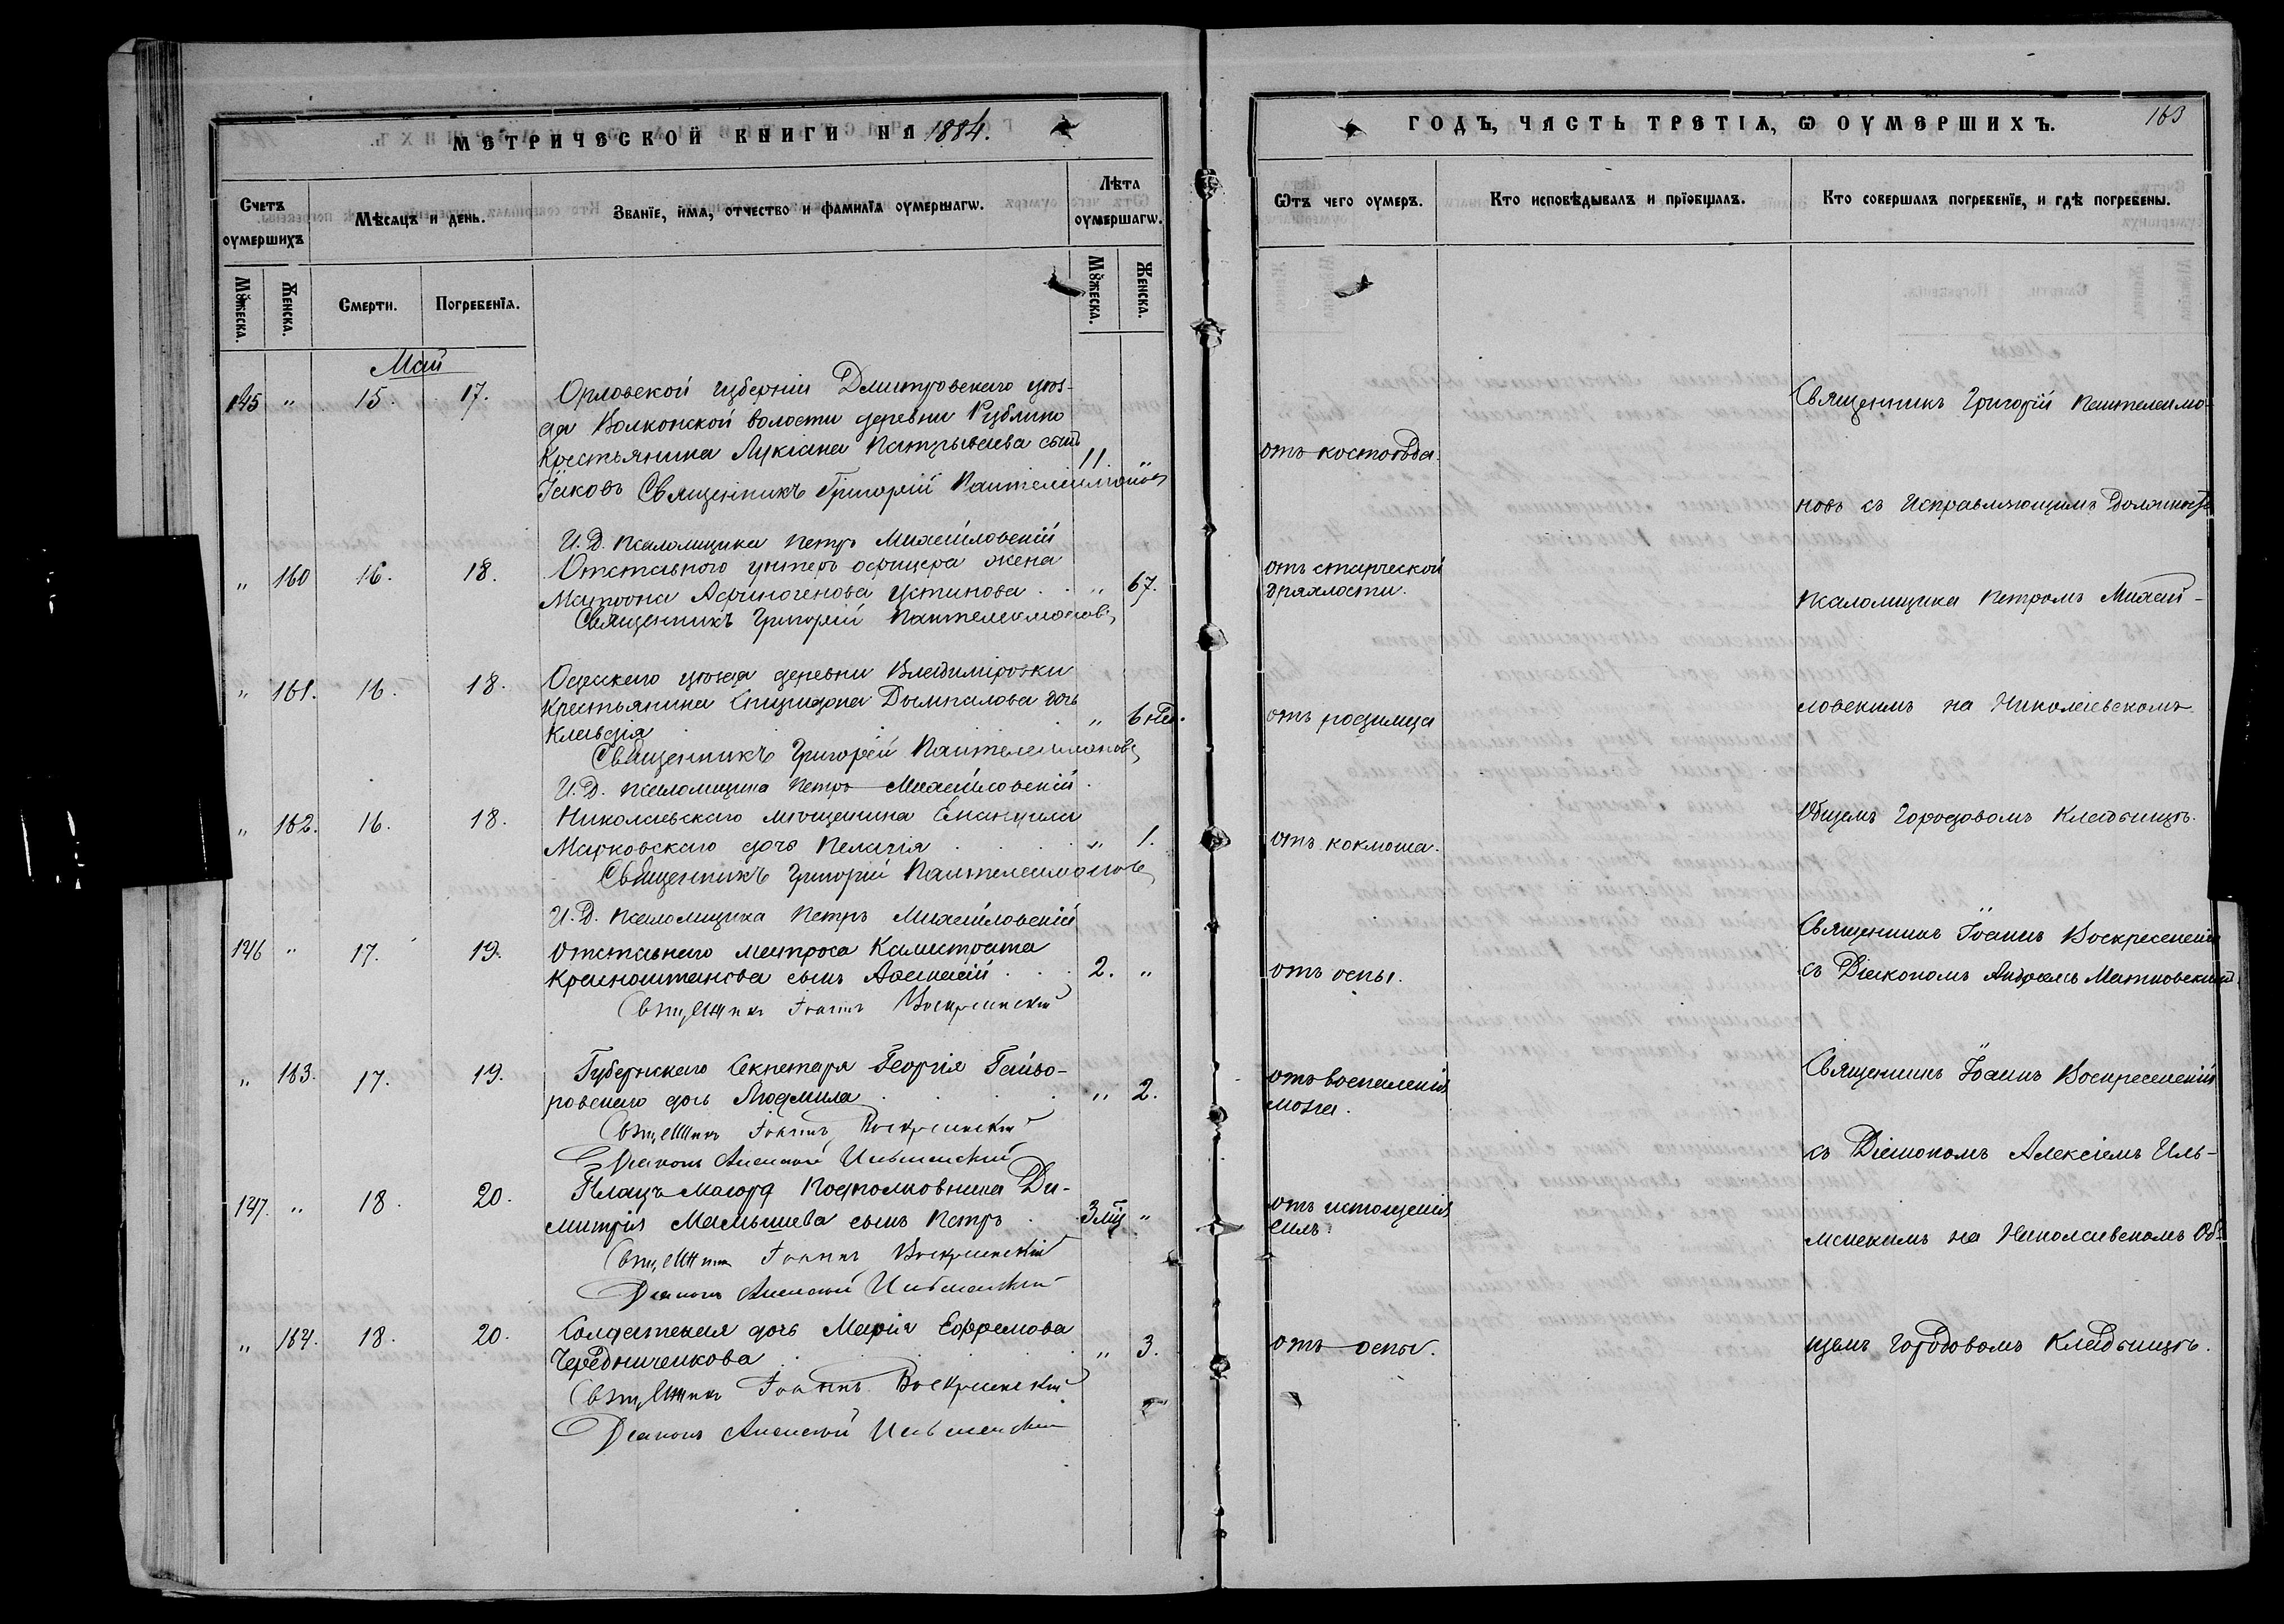 МЕТРИЧЕСКОЙ КНИГИ НА 1884.
Счетъ оумершихъ
Мѣсяцъ и день.
Званіе, имя, отчество и фамилія оумершагѡ.
Лѣта оумершагѡ.
Мꙋжеска.
Женска.
Смерти.
Погребенія.
Мꙋжеска.
Женска.
Май
145 " 15. 17. Орловской губерніи Дмитровскаго уѣз-
да Волконской волости деревни Рублино
Крестьянина Лукіана сынъ 11. "
Іаковъ Священникъ Григорій Пантелеимоновъ
И. Д. Псаломщика Петръ Михайловскій
" 160 16. 18. Отставного унтеръ офицера жена
Матрона Афиногенова Устинова . . " 67.
Священникъ Григорій Пантелеимоновъ
" 161. 16. 18. Одесскаго уѣзда деревни Владиміровки
крестьянина Спиридона дочь
Клавдія " 6 нед.
Священникъ Григорій Пантелеимоновъ
И. Д. Псаломщика Петръ Михайловскій.
" 162. 16. 18. Николаевскаго мѣщанина Емануила
Марковскаго дочь Пелагія . . . " 1.
Священникъ Григорій Пантелеимоновъ
И. Д. Псаломщика Петръ Михайловскій
146 " 17. 19. Отставнаго матроса Калистрата
Красноштанова сынъ . . . 2. "
Священникъ Іоаннъ Воскресенскій
" 163. 17. 19. Губернскаго Секретаря Георгія Гайво-
ровскаго дочь Людмила . . . " 2.
Священникъ Іоаннъ Воскресенскій
Діаконъ Алексій Ильменскій
147. " 18. 20. Плацъ-Маіора Подполковника Ди-
митрія Мамышева сынъ Петръ . 3 мц "
Священникъ Іоаннъ Воскресенскій
Діаконъ Алексій Ильменскій
" 164. 18. 20. Солдатская дочь Марія Ефремова
Чередниченкова . . . " 3.
Священникъ Іоаннъ Воскресенскій
Діаконъ Алексій Ильменскій
ГОДЪ, ЧАСТЬ ТРЕТІЯ, Ѡ ОУМЕРШИХЪ. 163
Ѿтъ чего оумеръ.
Кто исповѣдывалъ и пріобщалъ.
Кто совершалъ погребеніе, и гдѣ погребены.
Священникъ Григорій Пантелеимо-
отъ костоѣда.
новъ съ Исправляющимъ Должность
отъ старческой
дряхлости.
псаломщика Петромъ Михай-
отъ родимца
ловскимъ на Николаевскомъ
Общемъ Городовомъ Кладбищѣ.
отъ коклюша.
Священникъ Іоаннъ Воскресенскій
отъ оспы.
съ Діакономъ Андреемъ
Священникъ Іоаннъ Воскресенскій
отъ воспаленія
мозга.
съ Діакономъ Алексіемъ Иль-
отъ истощенія
силъ.
менскимъ на Николаевскомъ Об-
отъ оспы.
щемъ Городовомъ Кладбищѣ.